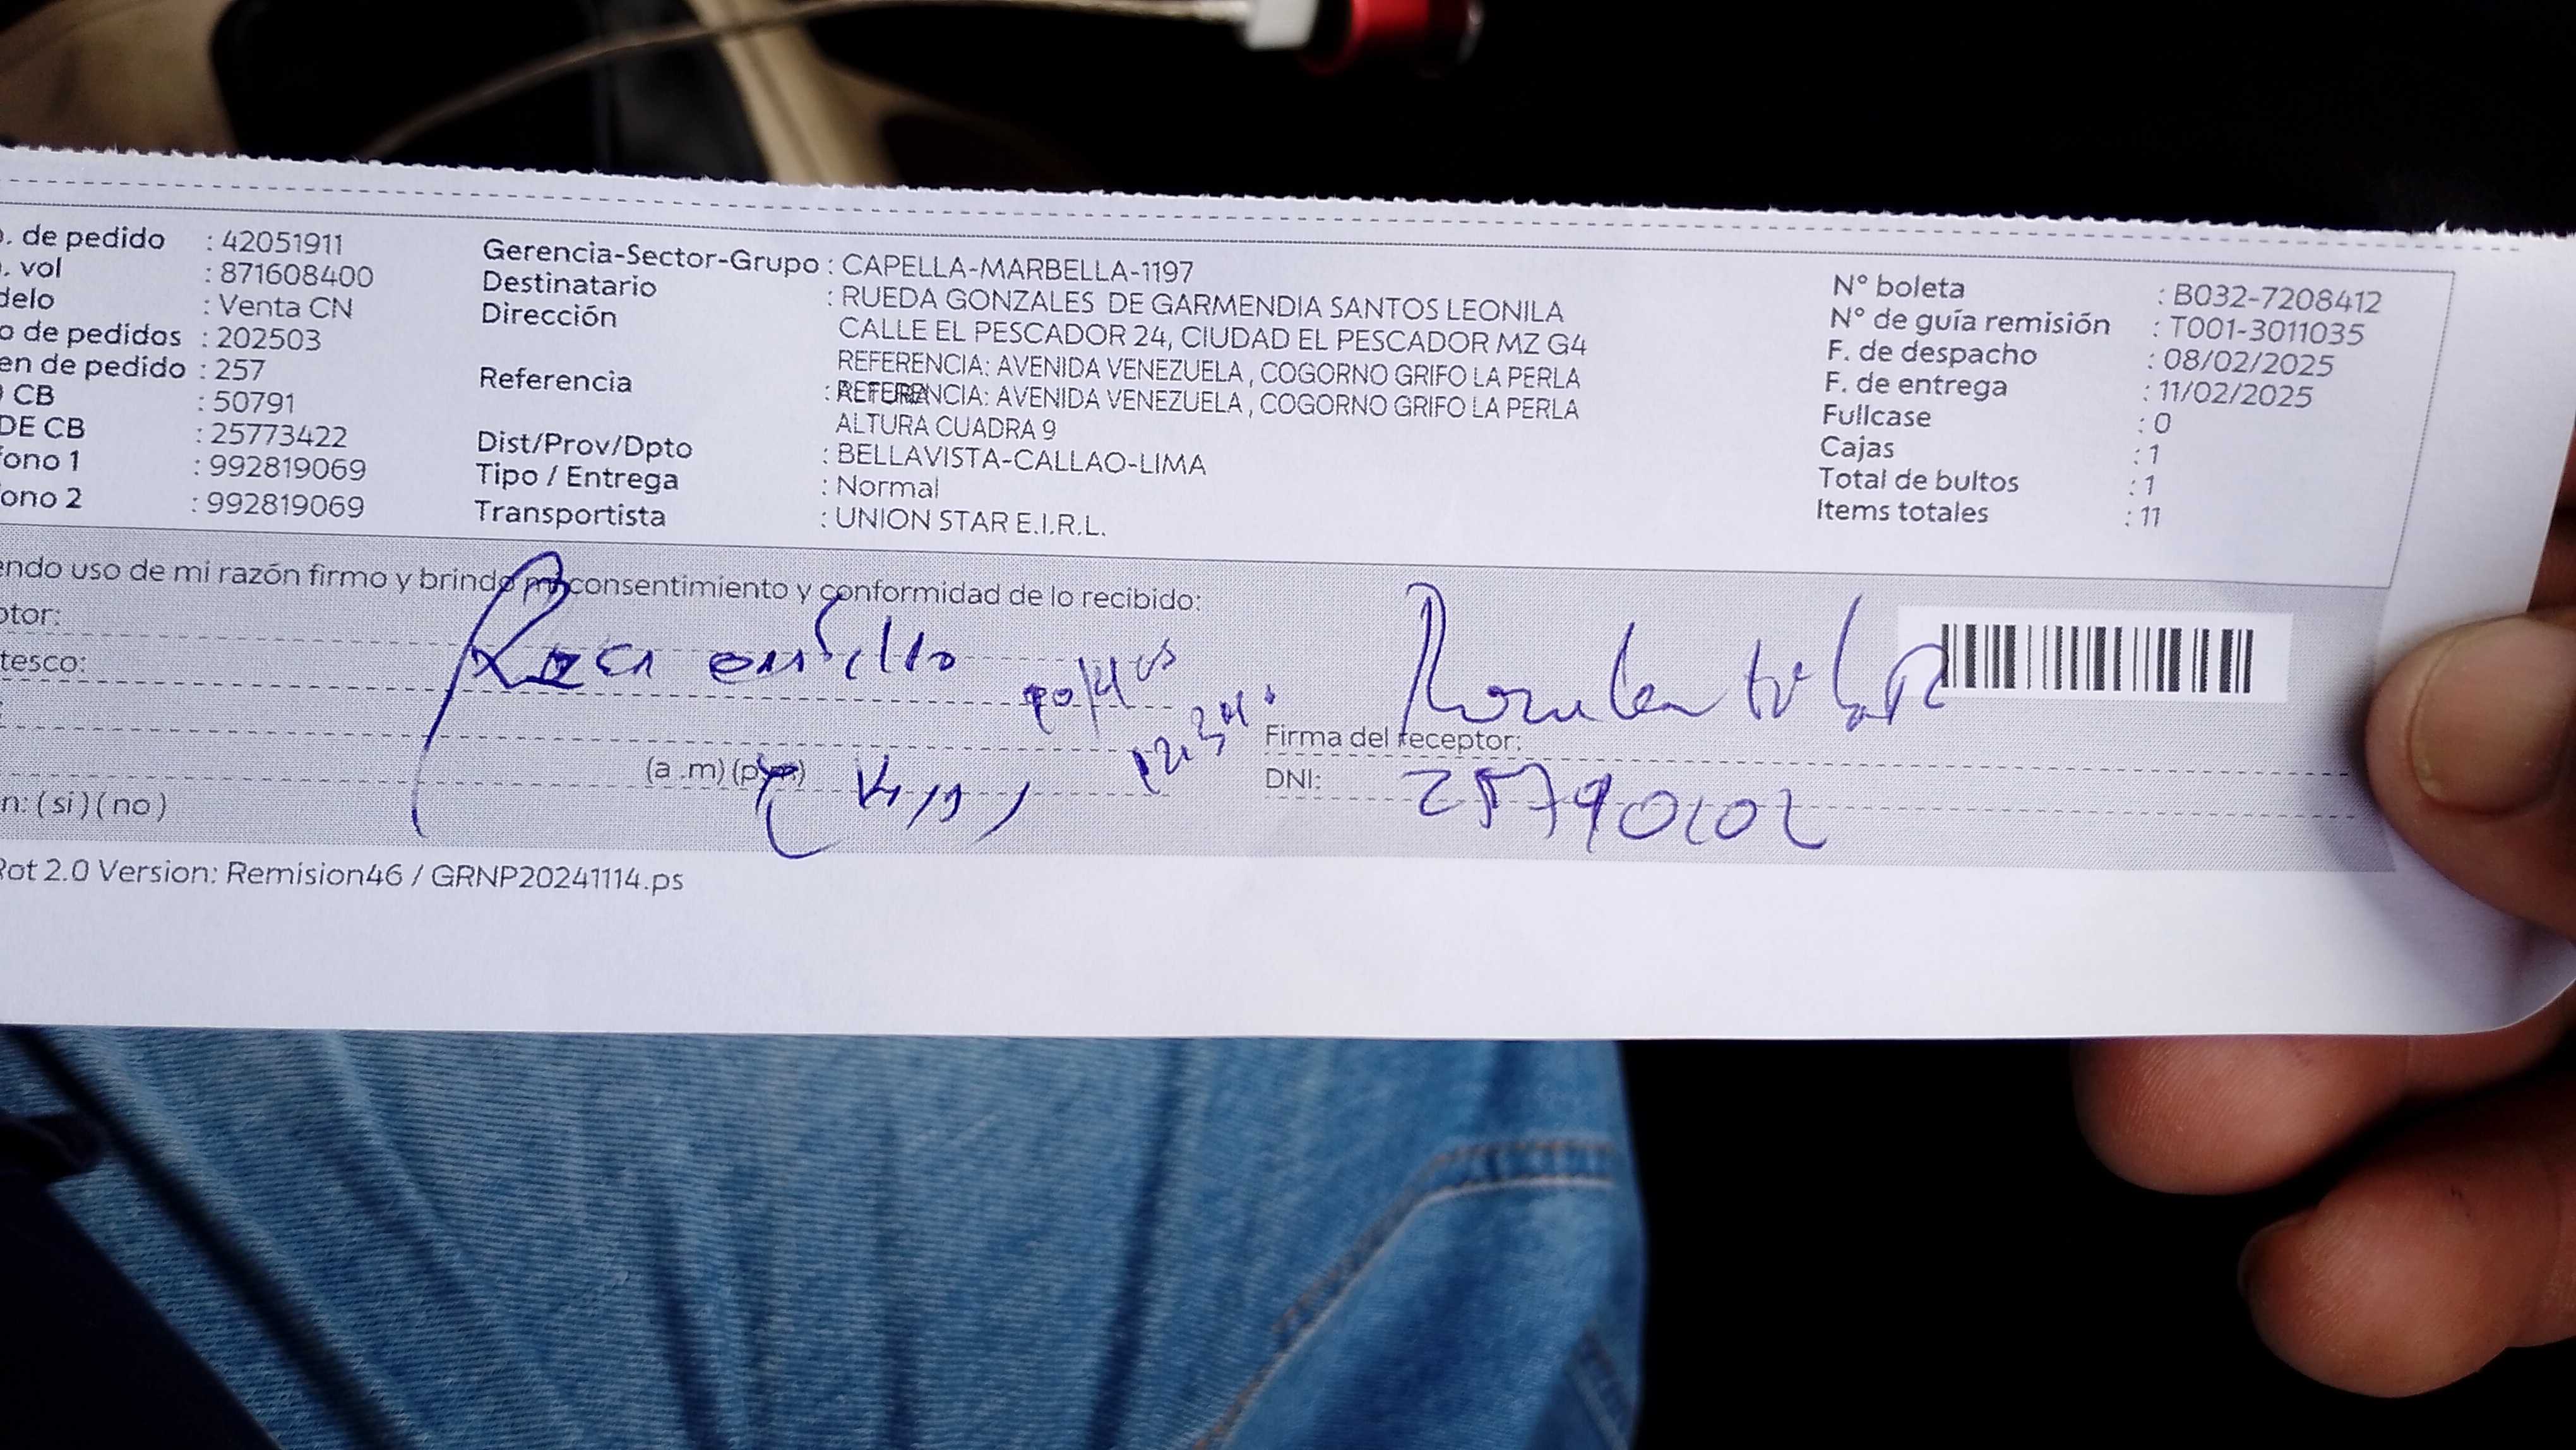 . de pedido : 42051911
. vol : 871608400
delo : Venta CN
o de pedidos : 202503
en de pedido : 257
CB : 50791
DE CB : 25773422
fono 1 : 992819069
ono 2 : 992819069
Gerencia-Sector-Grupo : CAPELLA-MARBELLA-1197
Destinatario : RUEDA GONZALES DE GARMENDIA SANTOS LEONILA
Dirección CALLE EL PESCADOR 24, CIUDAD EL PESCADOR MZ G4
REFERENCIA: AVENIDA VENEZUELA , COGORNO GRIFO LA PERLA
Referencia : REFERENCIA: AVENIDA VENEZUELA , COGORNO GRIFO LA PERLA
ALTURA CUADRA 9
Dist/Prov/Dpto : BELLAVISTA-CALLAO-LIMA
Tipo / Entrega : Normal
Transportista : UNION STAR E.I.R.L.
N° boleta : B032-7208412
N° de guía remisión : T001-3011035
F. de despacho : 08/02/2025
F. de entrega : 11/02/2025
Fullcase : 0
Cajas : 1
Total de bultos : 1
Items totales : 11
endo uso de mi razón firmo y brindo mi consentimiento y conformidad de lo recibido:
ptor:
tesco:
(a .m) (p.m)
n: ( si ) ( no )
Firma del receptor:
DNI:
Rot 2.0 Version: Remision46 / GRNP20241114.ps